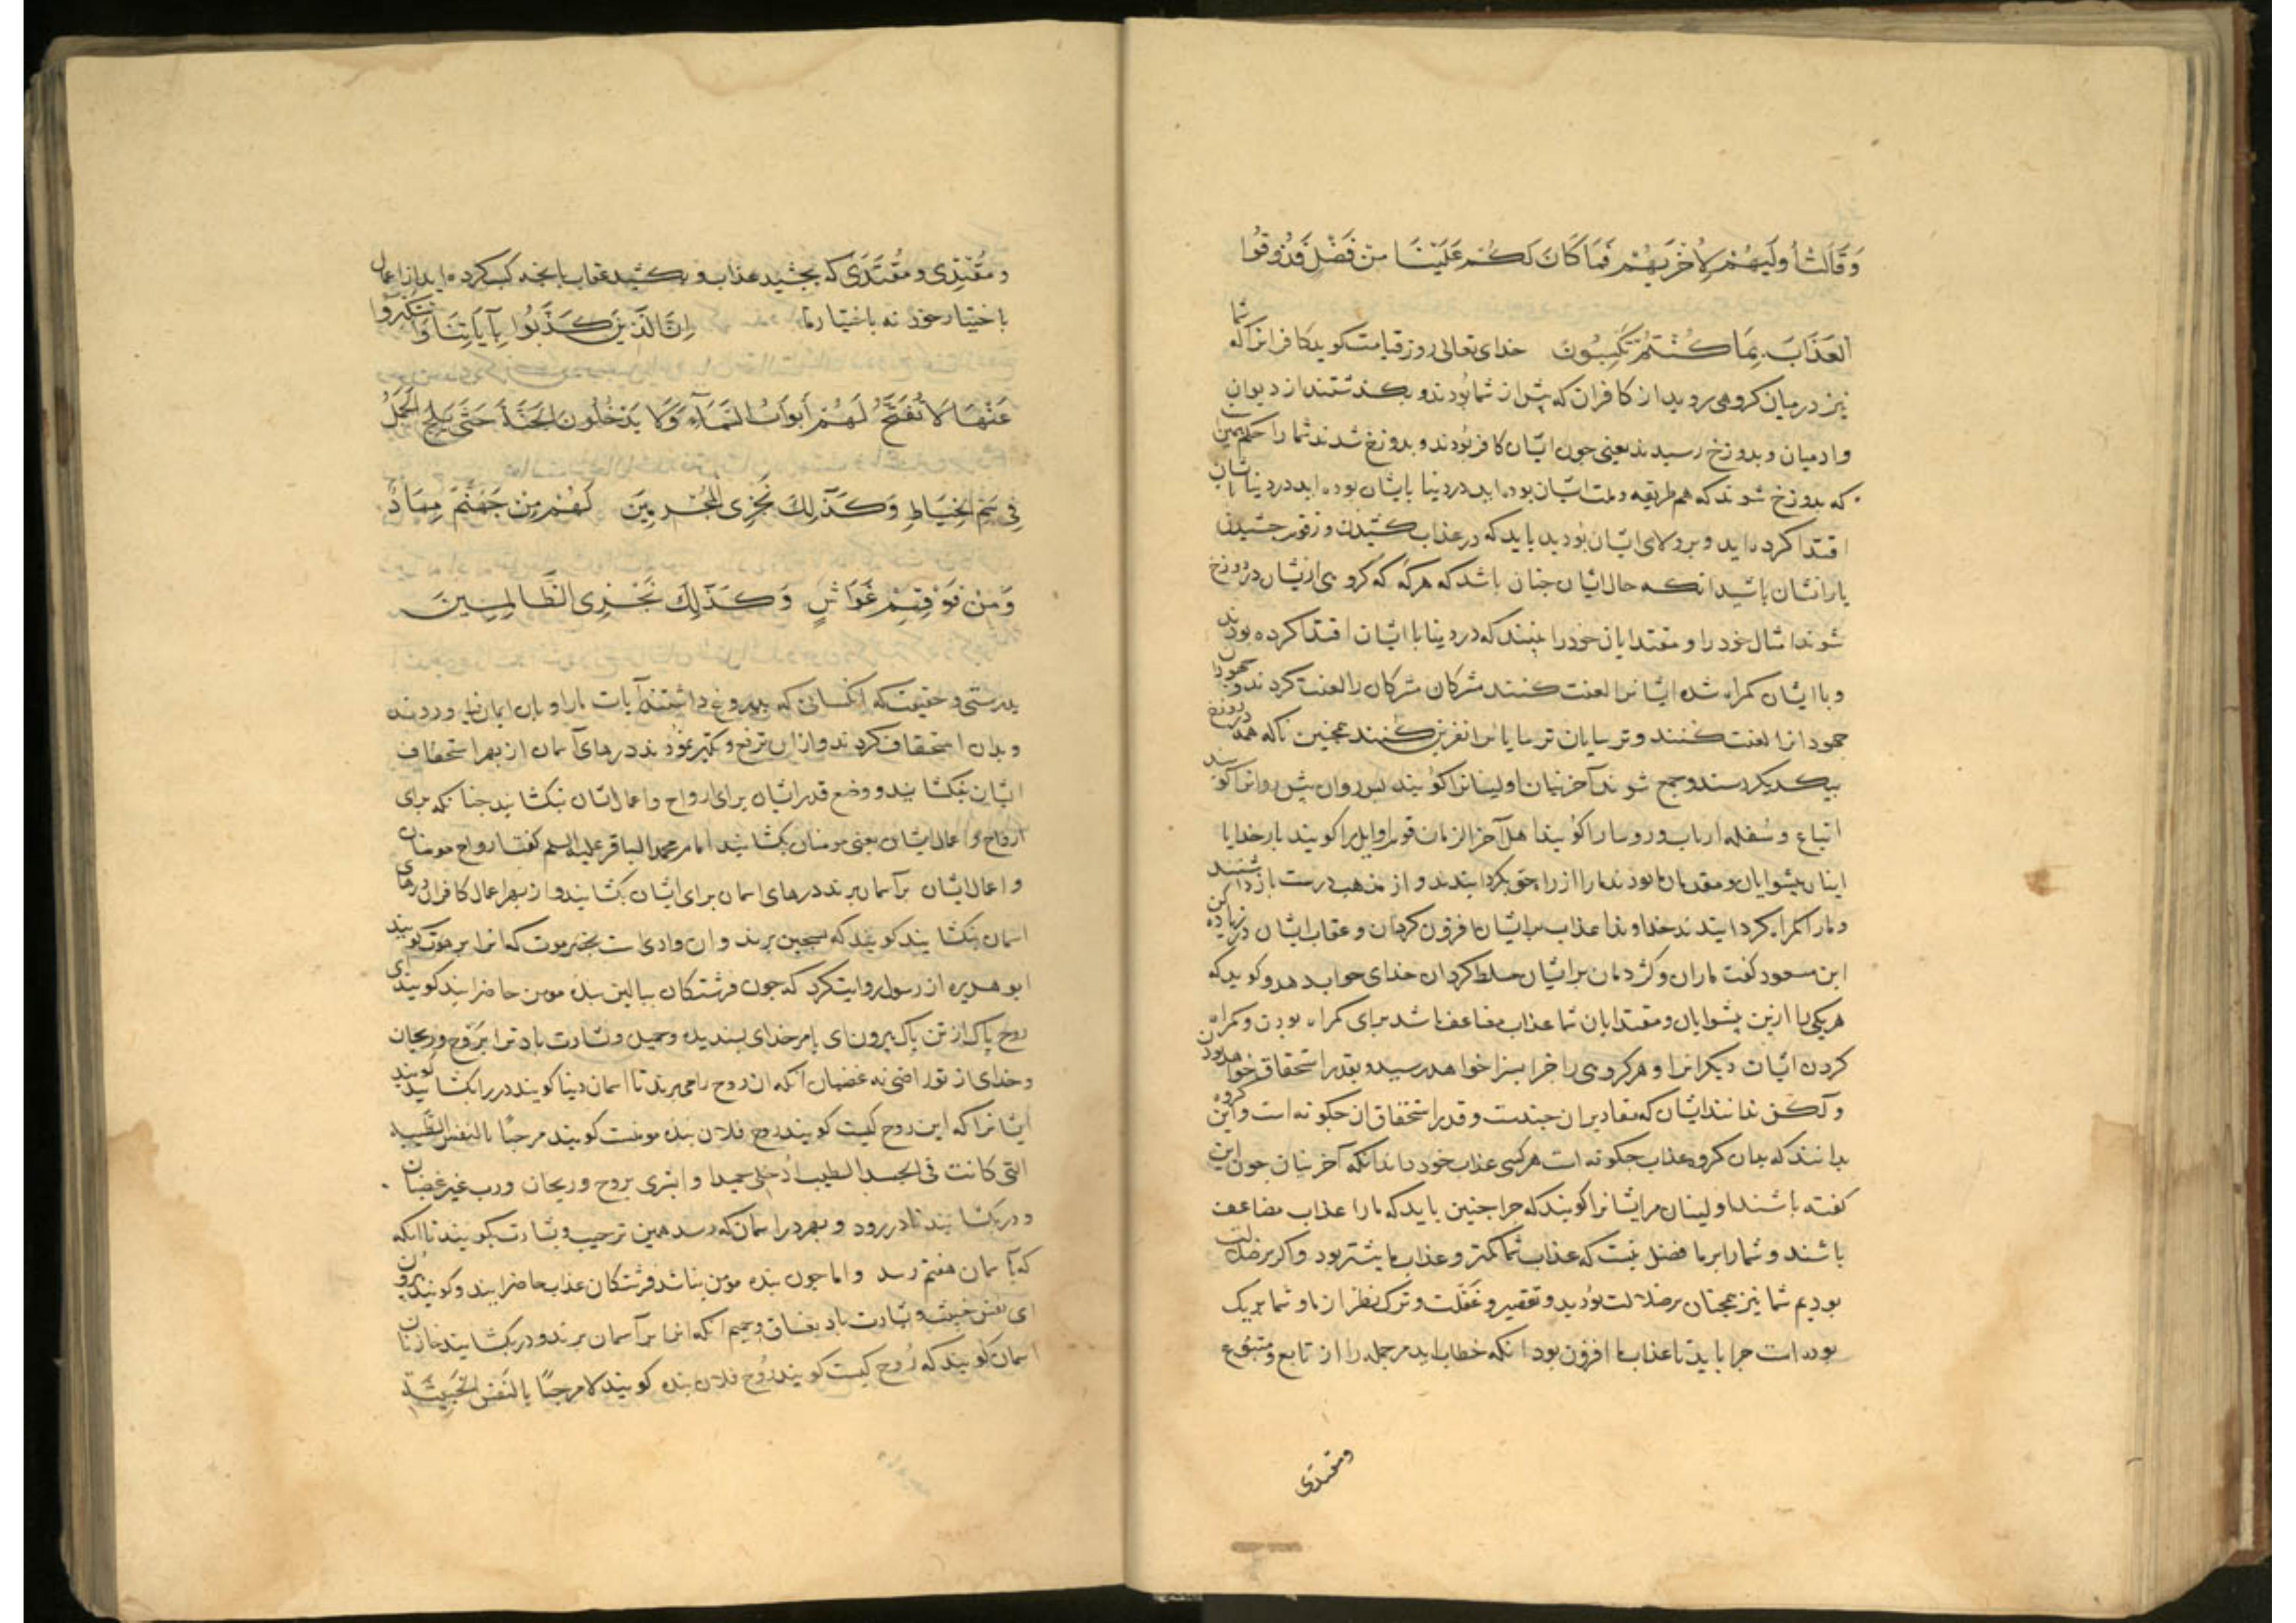 وَقَالَتْ أُولَيهُمْ لِأُخْرَيهُمْ فَمَا كَانَ لَكُمْ عَلَيْنَا مِنْ فَضْلٍ فَذُوقُوا
الْعَذَابَ بِمَا كُنْتُمْ تَكْسِبُونَ خدای تعالی روز قیامت کوید کافرانرا که شما
نیز در میان کروهی روید از کافران که پیش از شما بودند و بکذشتند از دیوان
وادمیان و بدوزخ رسیدند یعنی جون ایشان کافر بودند و بدوزخ شدند شما را حکم همین است
که بدوزخ شوند که هم طریقه وملت ایشان بوده اید در دینا بایشان بوده اید در دینا بایشان
اقتدا کرده اید و بر ولای ایشان بودید باید که در عذاب کشیدن و زقوم جشیدن
یار ایشان باشید انکه حال ایشان جنان باشد که هرکه که کروهی ازیشان در دوزخ
شوند امثال خود را و مقتدایان خود را بینند که در دینا با ایشان اقتدا کرده بودند
و با ایشان کمراه شده ایشانرا لعنت کنند مشرکان مشرکان را لعنت کردند و جهودان
جهودانرا لعنت کنند و ترسایان ترسایانرا نفرین کنند همجنین تا که همه در دوزخ
بیکدیکر رسند و جمع شوند آخرینان اولینانرا کویند پس روان پیش روانرا کویند
اتباع و سفله ارباب و روسا را کویند اهل آخر الزمان قوم اوایل را کویند بار خدایا
اینان پیشوایان و مقدمان ما بودند ما را از راه حق بکردانیدند و از مذهب درست باز داشتند
و ما را کمراه کردانیدند خداوندا عذاب بر ایشان افزون کردان و عقاب ایشان زیاده کن
ابن مسعود کفت ماران و کژدمان بر ایشان مسلط کردان خدای جواب دهد و کوید که
هر یکی را ازین پیشوایان و مقتدایان شما عذاب مضاعف باشد برای کمراه بودن و کمراه
کردن ایشان دیکرانرا و هر کروهی را جزا بسزا خواهد رسید و بقدر استحقاق خواهد بود
ولکن ندانند ایشان که مقادیر ان جندست و قدر استحقاق ان جکونه است و این کروه
بدانند که بدان کروه عذاب جکونه است هر کسی عذاب خود داند انکه آخرینان جون این
کفته باشند اولینان مر ایشانرا کویند که جرا جنین باید که ما را عذاب مضاعف
باشند و شما را بر ما فضل نیست که عذاب شما کمتر و عذاب ما بیشتر بود و اکر بر ضلالت
بودیم شما نیز همجنان بر ضلالت بودید و تقصیر و غفلت و ترک نظر از ما و شما بریک
بوده است جرا باید تا عذاب ما افزون بود انکه خطاب اید مر جمله را از تابع و متبوع
ومقتدی
و مُقْتَدِی و مُقْتَدَی که بجشید عذاب و بکشید عقاب بانجه کسب کرده اید از اعمال
باختیار خود نه باختیار ما إِنَّ الَّذِينَ كَذَّبُوا بِآيَاتِنَا وَاسْتَكْبَرُوا
عَنْهَا لَا تُفَتَّحُ لَهُمْ أَبْوَابُ السَّمَاءِ وَلَا يَدْخُلُونَ الْجَنَّةَ حَتَّى يَلِجَ الْجَمَلُ
فِي سَمِّ الْخِيَاطِ وَكَذَلِكَ نَجْزِي الْمُجْرِمِينَ لَهُمْ مِنْ جَهَنَّمَ مِهَادٌ
وَمِنْ فَوْقِهِمْ غَوَاشٍ وَكَذَلِكَ نَجْزِي الظَّالِمِينَ
بدرستی و حقیقت که انکسانی که بدروغ داشتند آیات ما را و بان ایمان نیاوردند
و بدان استخفاف کردند و از ان ترفع و تکبر نمودند درهای آسمان از بهر استخفاف
ایشان نکشایند و وضع قدر ایشان برای ارواح و اعمال ایشان نکشایند جنانکه برای
ارواح و اعمال ایشان یعنی مومنان بکشایند امام محمد الباقر علیه السلم کفت ارواح مومنان
و اعمال ایشان بر آسمان برند درهای اسمان برای ایشان بکشایند و از بهر اعمال کافران درهای
اسمان نکشایند کویند که بسجین برند و ان وادی است بحضرموت که انرا برهوت کویند
ابو هریره از رسول روایت کرد که جون فرشتکان ببالین بنده مومن حاضر ایند کویند ای
روح پاک از تن پاک بیرون ای بامر خدای پسندیده و جمیل و بشارت باد ترا بروح و ریحان
و خدای از تو راضی نه غضبان انکه ان روح را می برند تا اسمان دینا کویند در را بکشایید کویند
ایشانرا که این روح کیست کویند روح فلان بنده مومنست کویند مرحبًا بالنفس الطیبه
التی کانت فی الجسد الطیب ادخلی حمیدا و ابشری بروح و ریحان و رب غیر غضبان
و در بکشایند تا در رود و بهر در اسمان که رسد همین ترحیب و بشارت بکویند تا انکه
که بآسمان هفتم رسد و اما جون بنده مؤمن نباشد فرشتکان عذاب حاضر ایند و کویند بیرون
ای نفس خبیث و بشارت باد بغساق و حمیم انکه انرا بر آسمان برند و در بکشایند خازنان
اسمان کویند که رُوح کیست کویند رُوح فلان بنده کویند لا مرحبًا بالنفس الخبیثة